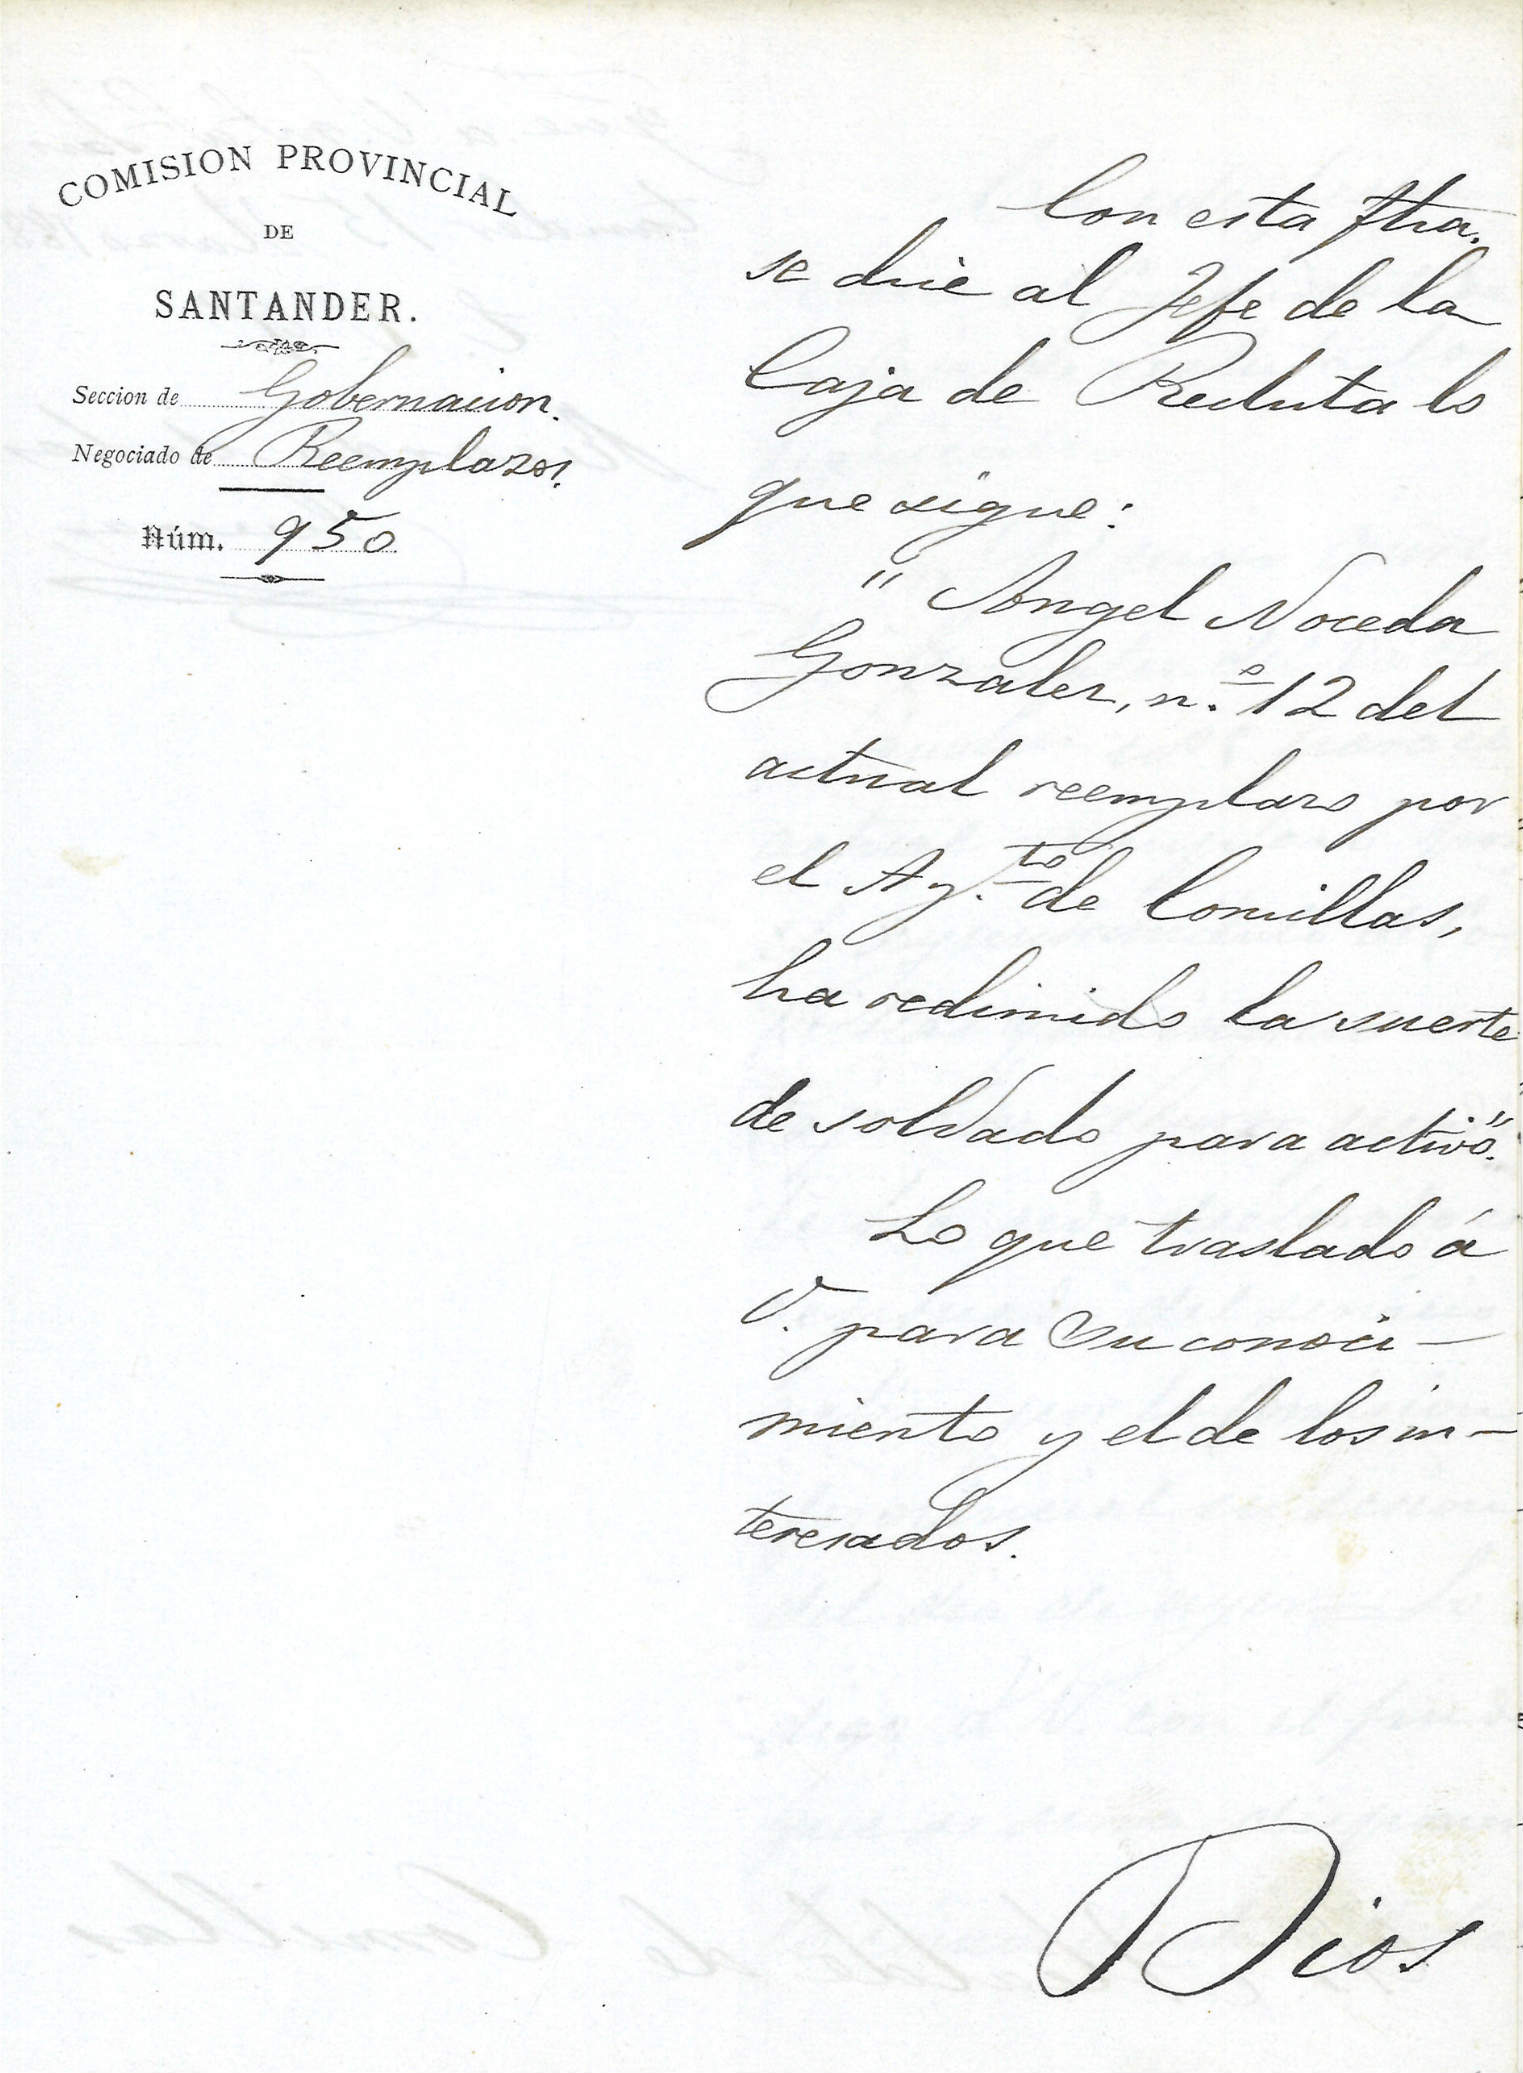 COMISION PROVINCIAL
DE
SANTANDER.
Seccion de Gobernacion.
Negociado de Reemplazos.
Núm. 950
Con esta fha.
se dice al Jefe de la
Caja de Recluta lo
que sigue:
"Angel Noceda
Gonzalez, n.º 12 del
actual reemplazo por
el Ay.to de Comillas,
ha redimido la suerte
de soldado para activo".
Lo que traslado á
V. para su conoci-
miento y el de los in-
teresados.
Dios